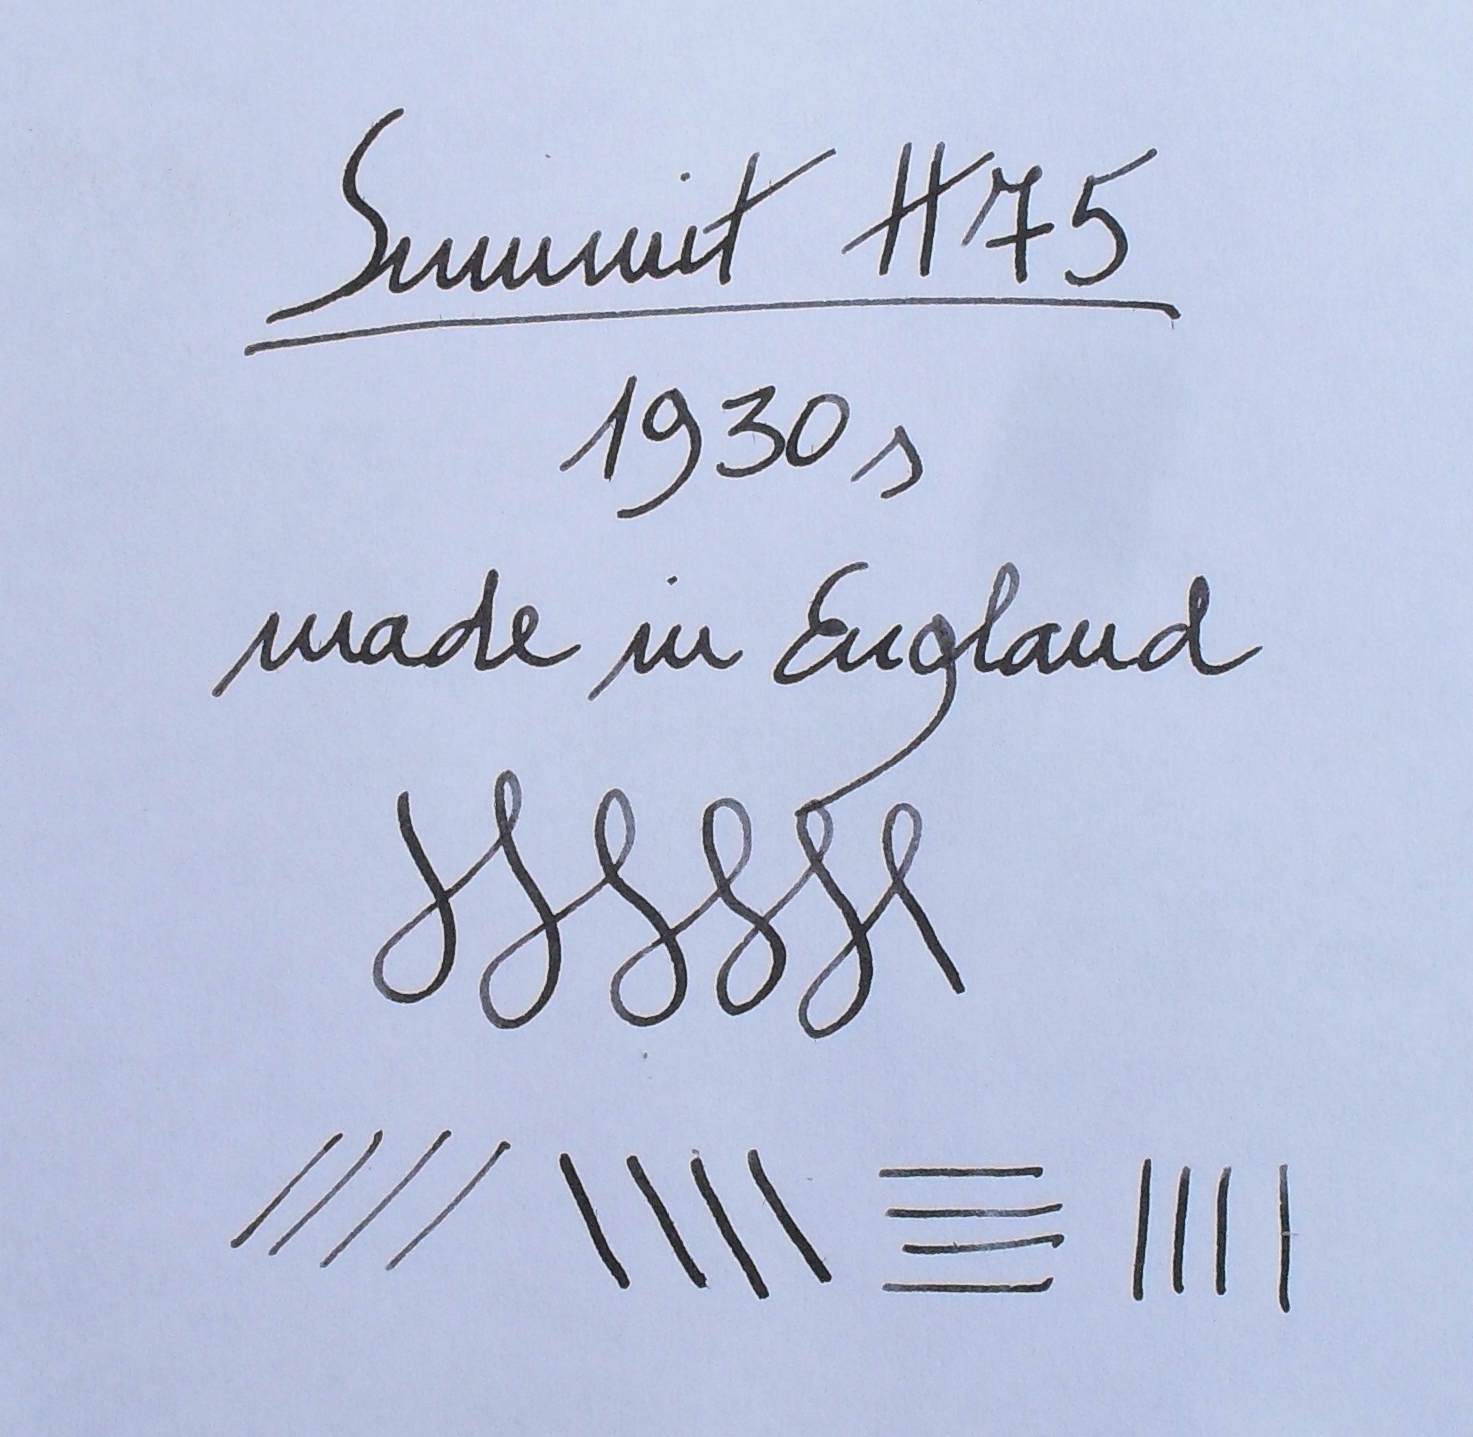 Summit H75
1930s
made in England